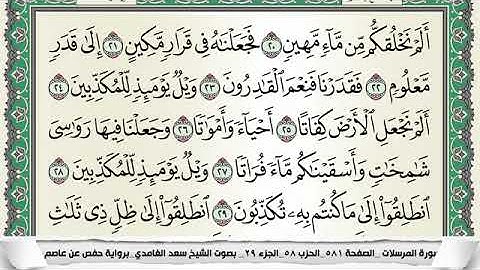 أَلَمْ نَخْلُقكُّم مِّن مَّآءٍ مَّهِينٍ ٢٠ فَجَعَلْنَٰهُ فِى قَرَارٍ مَّكِينٍ ٢١ إِلَىٰ قَدَرٍ
مَّعْلُومٍ ٢٢ فَقَدَرْنَا فَنِعْمَ ٱلْقَٰدِرُونَ ٢٣ وَيْلٌ يَوْمَئِذٍ لِّلْمُكَذِّبِينَ ٢٤
أَلَمْ نَجْعَلِ ٱلْأَرْضَ كِفَاتًا ٢٥ أَحْيَآءً وَأَمْوَٰتًا ٢٦ وَجَعَلْنَا فِيهَا رَوَٰسِىَ
شَٰمِخَٰتٍ وَأَسْقَيْنَٰكُم مَّآءً فُرَاتًا ٢٧ وَيْلٌ يَوْمَئِذٍ لِّلْمُكَذِّبِينَ ٢٨
ٱنطَلِقُوٓا۟ إِلَىٰ مَا كُنتُم بِهِۦ تُكَذِّبُونَ ٢٩ ٱنطَلِقُوٓا۟ إِلَىٰ ظِلٍّ ذِى ثَلَٰثِ
ورة المرسلات _الصفحة ٥٨١_الحزب ٥٨_الجزء ٢٩_ بصوت الشيخ سعد الغامدي_برواية حفص عن عاصم